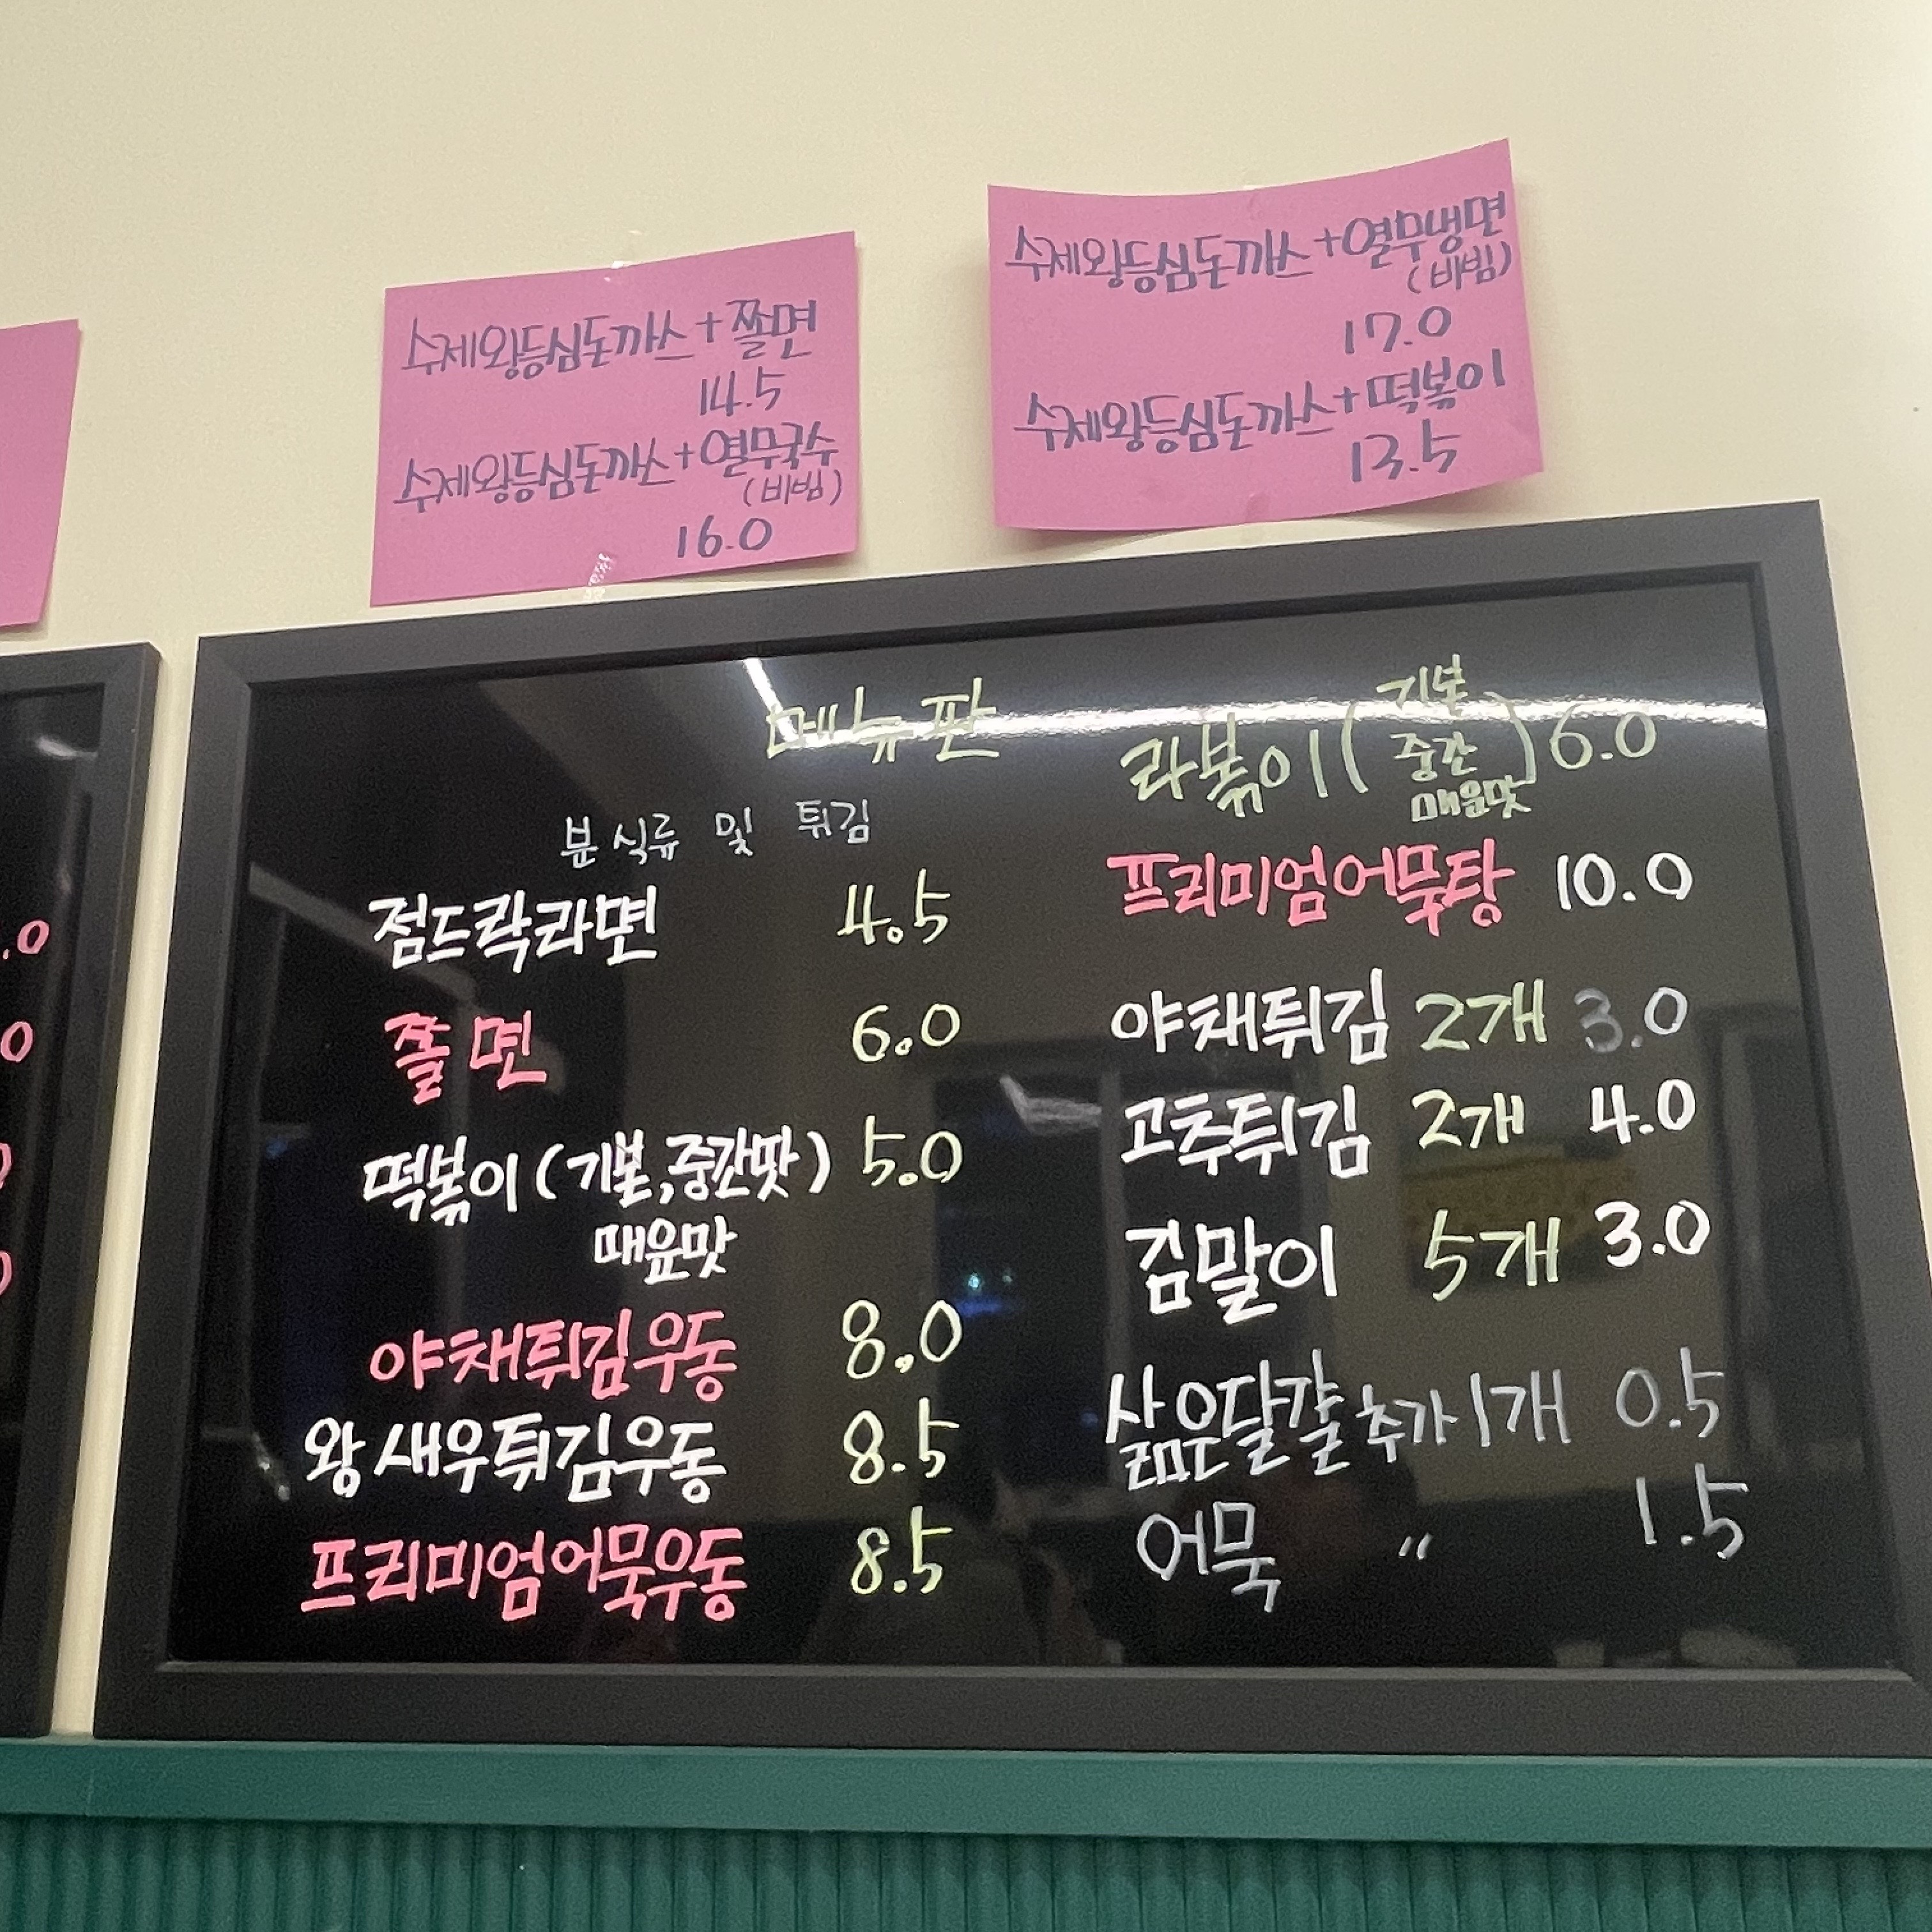 수제왕등심돈까스+쫄면
14.5
수제왕등심돈까스+열무국수
(비빔)
16.0
수제왕등심돈까스+열무냉면
(비빔)
17.0
수제왕등심돈까스+떡볶이
13.5
메뉴판
분식류 및 튀김
점드락라면 4.5
쫄면 6.0
떡볶이(기본,중간맛) 5.0
매운맛
야채튀김우동 8.0
왕새우튀김우동 8.5
프리미엄어묵우동 8.5
기본
라볶이(중간) 6.0
매운맛
프리미엄어묵탕 10.0
야채튀김 2개 3.0
고추튀김 2개 4.0
김말이 5개 3.0
삶은달걀추가1개 0.5
어묵 〃 1.5
.0
0
0
0